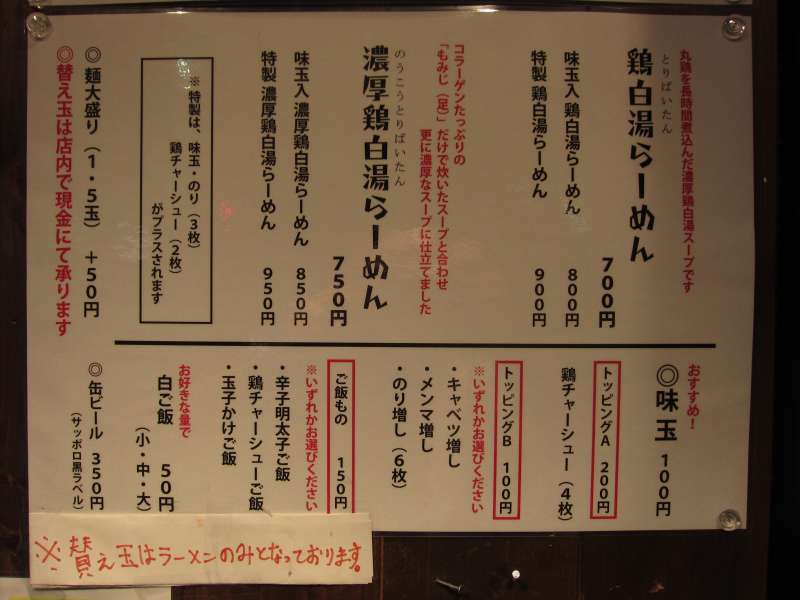 丸鶏を長時間煮込んだ濃厚鶏白湯スープです
とりぱいたん
鶏白湯らーめん 700円
味玉入 鶏白湯らーめん 800円
特製 鶏白湯らーめん 900円
コラーゲンたっぷりの
「もみじ(足)」だけで炊いたスープと合わせ
更に濃厚なスープに仕立てました
のうこうとりぱいたん
濃厚鶏白湯らーめん 750円
味玉入 濃厚鶏白湯らーめん 850円
特製 濃厚鶏白湯らーめん 950円
※特製は、味玉・のり(3枚)
鶏チャーシュー(2枚)
がプラスされます
◎麺大盛り(1・5玉) +50円
◎替え玉は店内で現金にて承ります
おすすめ!
◎味玉 100円
トッピングA 200円
鶏チャーシュー(4枚)
トッピングB 100円
※いずれかお選びください
・キャベツ増し
・メンマ増し
・のり増し(6枚)
ご飯もの 150円
※いずれかお選びください
・辛子明太子ご飯
・鶏チャーシューご飯
・玉子かけご飯
お好きな量で
白ご飯 50円
(小・中・大)
◎缶ビール 350円
(サッポロ黒ラベル)
※替え玉はラーメンのみとなっております。